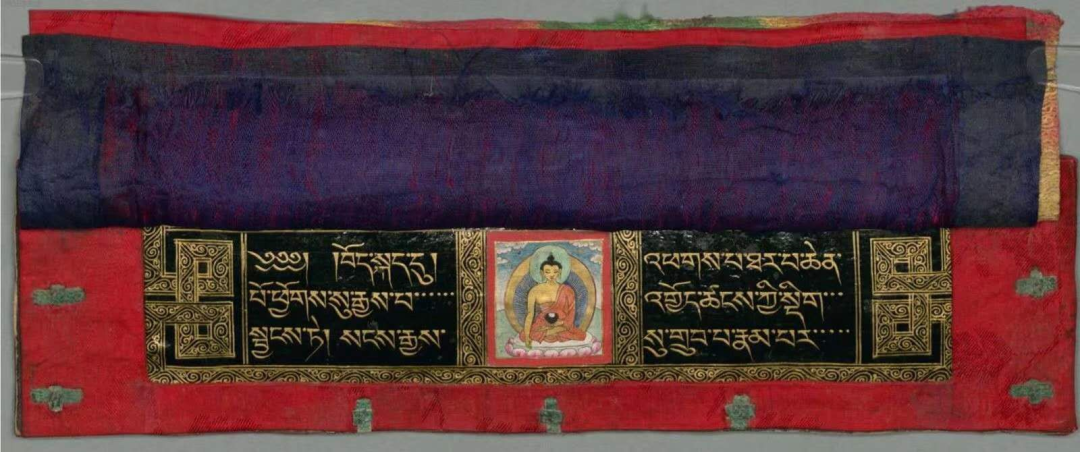 ༄༅༅། །བོད་སྐད་དུ། འཕགས་པ་ཐར་པ་ཆེན་
པོ་ཕྱོགས་སུ་རྒྱས་པ་····· འགྱོད་ཚངས་ཀྱི་སྡིག་···
སྦྱངས་ཏེ། སངས་རྒྱས་ སུ་གྲུབ་པ་རྣམ་པར་·····